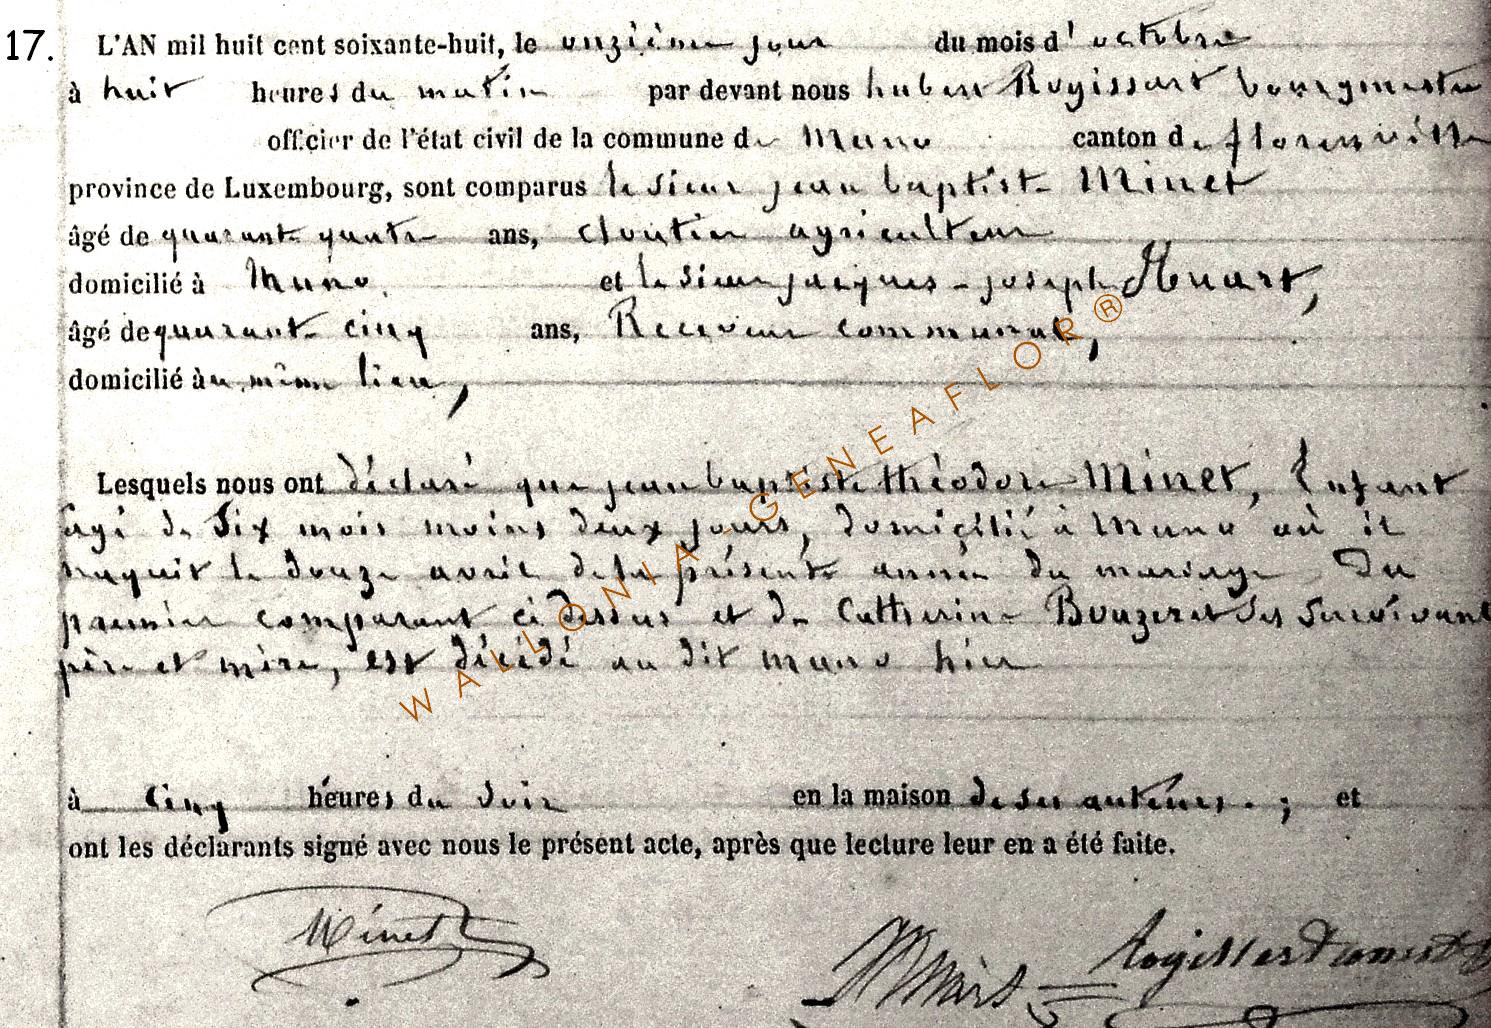 17. L'AN mil huit cent soixante-huit, le onzième jour du mois d'octobre
à huit heures du matin par devant nous hubert Rogissart bourgmestre
officier de l'état civil de la commune de Muno canton de florenville
province de Luxembourg, sont comparus le sieur jean baptiste Minet
âgé de quarante quatre ans, cloutier agriculteur
domicilié à Muno. et le sieur jacques-joseph Huart,
âgé de quarante cinq ans, Receveur communal,
domicilié au même lieu,
Lesquels nous ont déclaré que jean baptiste théodore Minet, Enfant
agé de Six mois moins deux jours, domicilié à Muno où il
naquit le douze avril de la présente année du mariage Du
premier comparant ci dessus et de Catherine Bouzeret Ses Survivant
père et mère, est décédé au dit muno hier
à Cinq heures du Soir en la maison de ses auteurs. ; et
ont les déclarants signé avec nous le présent acte, après que lecture leur en a été faite.
Minet
WALLONIA-GENEAFLOR®